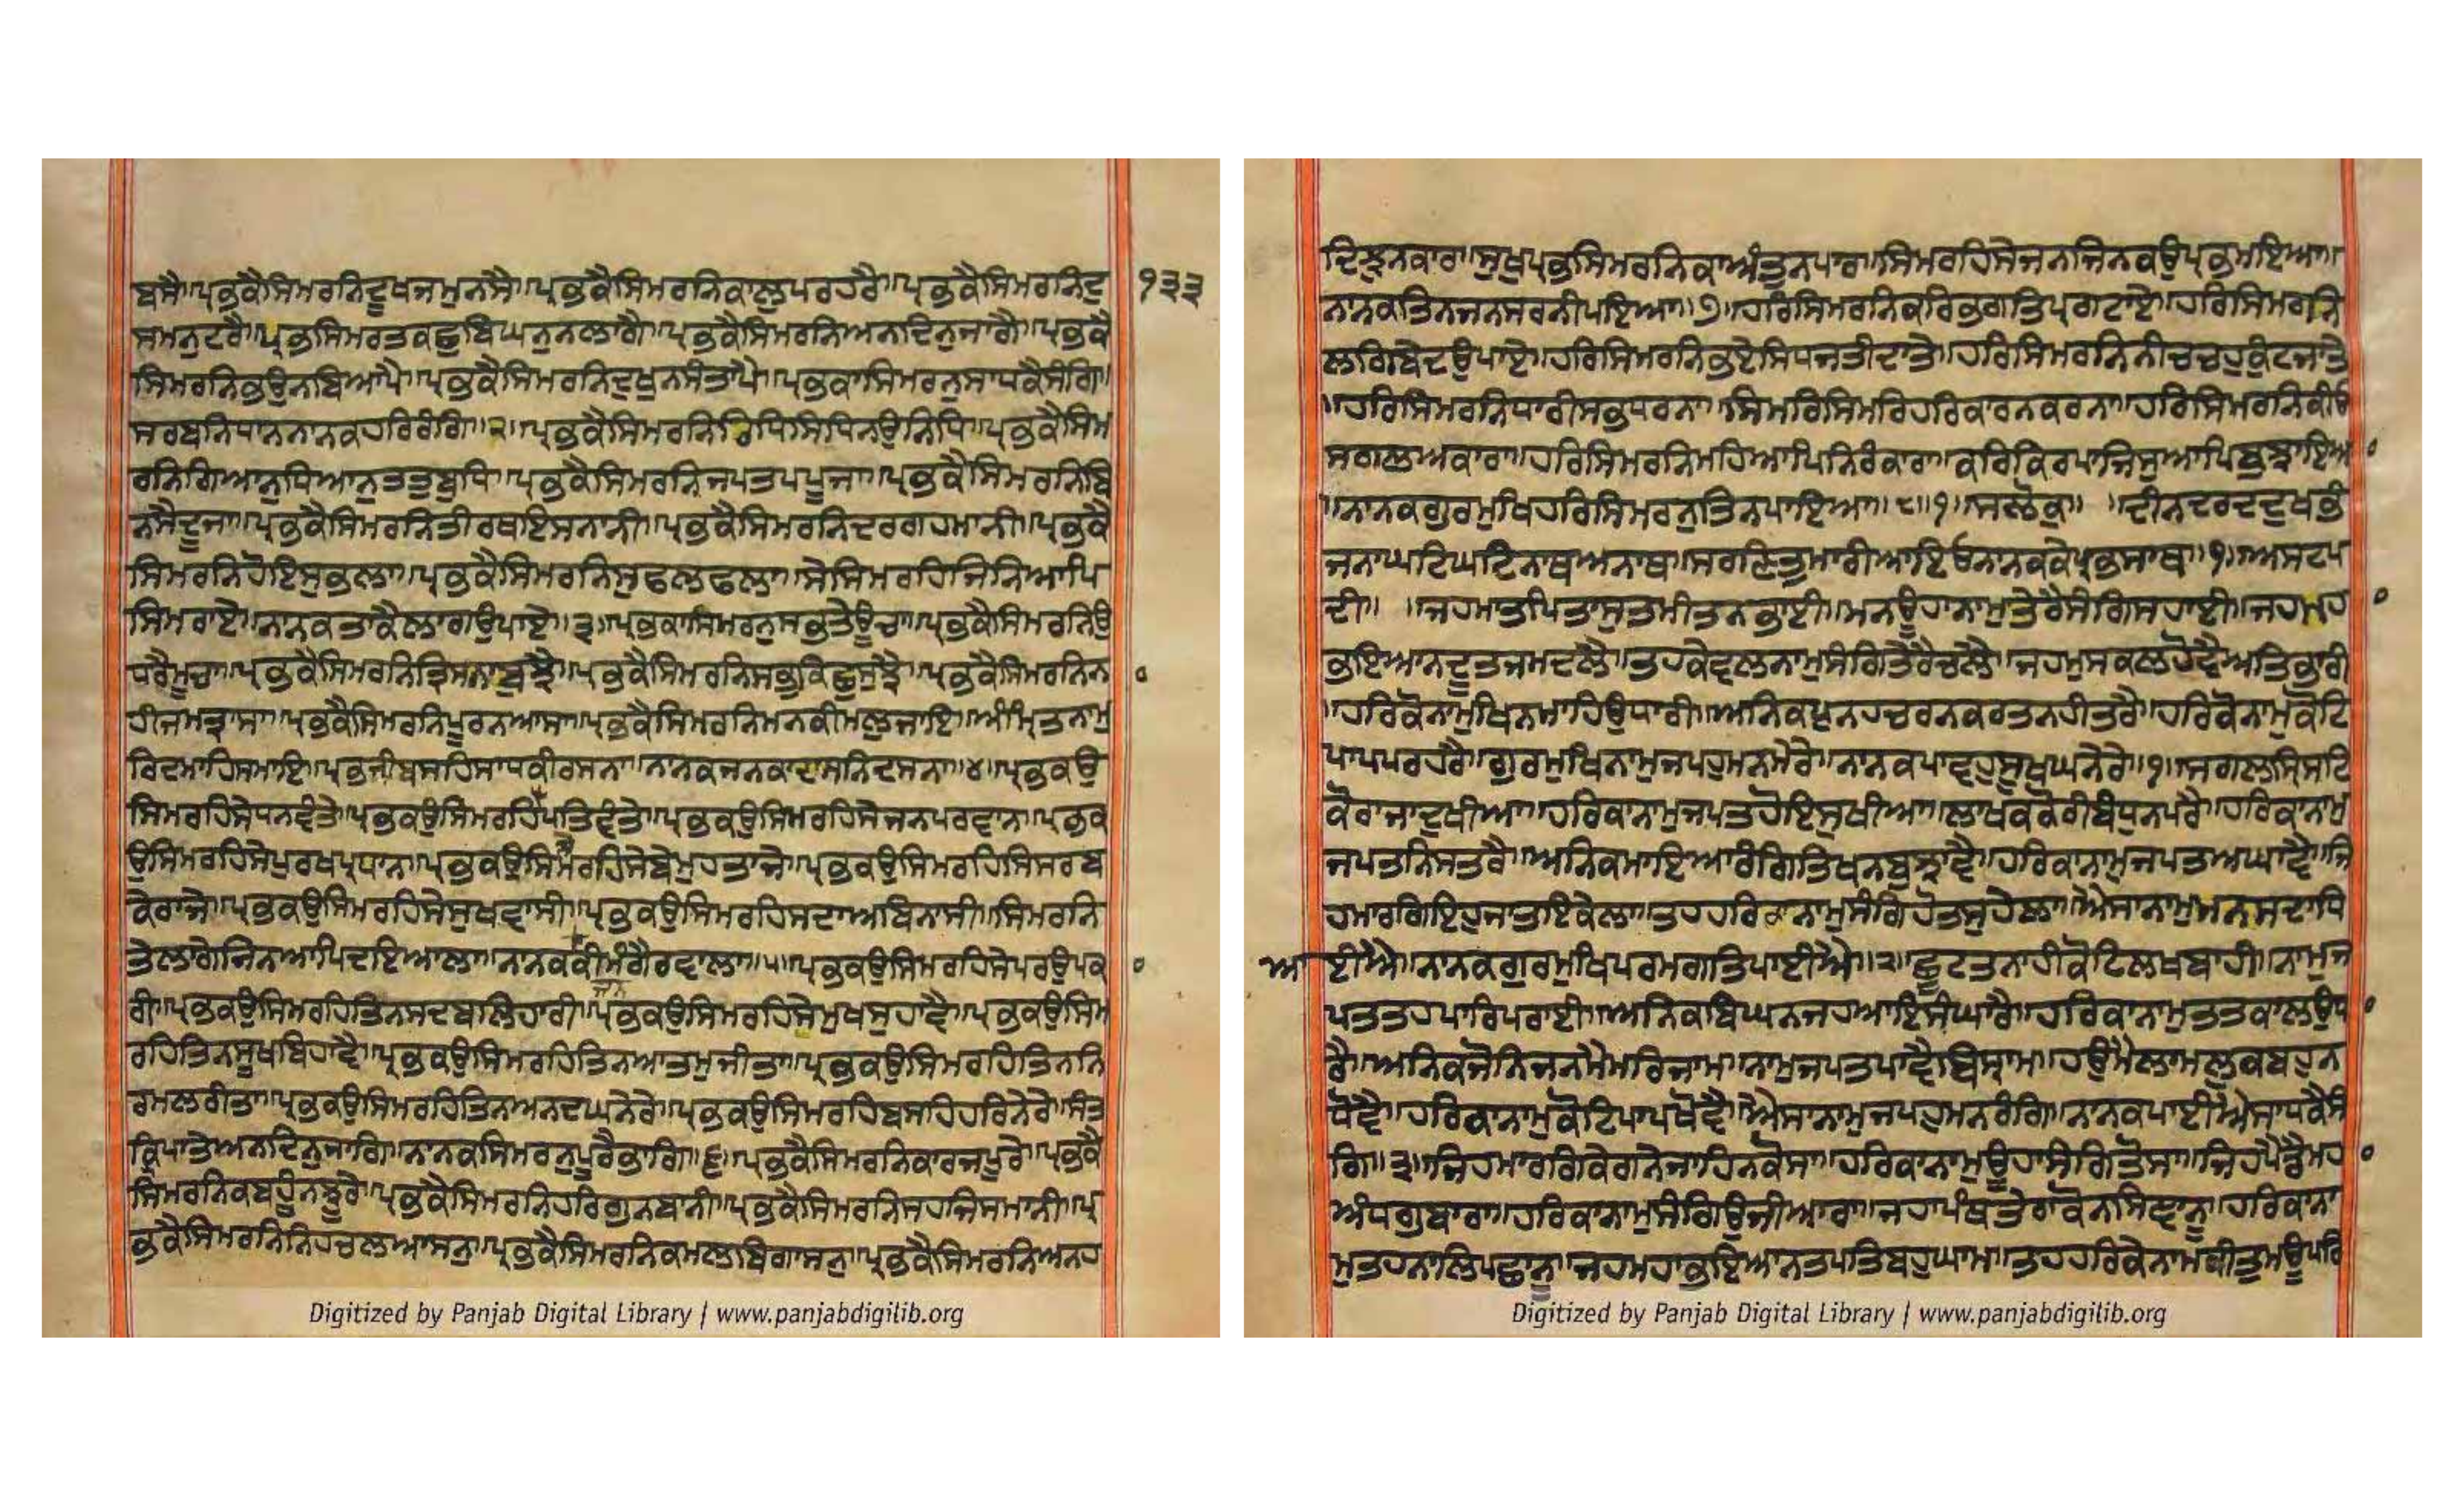 ਬਸੈ॥ਪ੍ਰਭਕੈਸਿਮਰਨਿਦੂਖਜਮੁਨਸੈ॥ਪ੍ਰਭਕੈਸਿਮਰਨਿਕਾਲੁਪਰਹਰੈ॥ਪ੍ਰਭਕੈਸਿਮਰਨਿਦੁ
੧੩੩
ਸਮਨੁਟਰੈ॥ਪ੍ਰਭਸਿਮਰਤਕਛੁਬਿਘਨੁਨਲਾਗੈ॥ਪ੍ਰਭਕੈਸਿਮਰਨਿਅਨਦਿਨੁਜਾਗੈ॥ਪ੍ਰਭਕੈ
ਸਿਮਰਨਿਭਉਨਬਿਆਪੈ॥ਪ੍ਰਭਕੈਸਿਮਰਨਿਦੁਖੁਨਸੰਤਾਪੈ॥ਪ੍ਰਭਕਾਸਿਮਰਨੁਸਾਧਕੈਸੰਗਿ॥
ਸਰਬਨਿਧਾਨਨਾਨਕਹਰਿਰੰਗਿ॥੨॥ਪ੍ਰਭਕੈਸਿਮਰਨਿਰਿਧਿਸਿਧਿਨਉਨਿਧਿ॥ਪ੍ਰਭਕੈਸਿਮ
ਰਨਿਗਿਆਨੁਧਿਆਨੁਤਤੁਬੁਧਿ॥ਪ੍ਰਭਕੈਸਿਮਰਨਿਜਪਤਪਪੂਜਾ॥ਪ੍ਰਭਕੈਸਿਮਰਨਿਬਿ
ਨਸੈਦੂਜਾ॥ਪ੍ਰਭਕੈਸਿਮਰਨਿਤੀਰਥਇਸਨਾਨੀ॥ਪ੍ਰਭਕੈਸਿਮਰਨਿਦਰਗਹਮਾਨੀ॥ਪ੍ਰਭਕੈ
ਸਿਮਰਨਿਹੋਇਸੁਭਲਾ॥ਪ੍ਰਭਕੈਸਿਮਰਨਿਸੁਫਲਫਲਾ॥ਸੇਸਿਮਰਹਿਜਿਨਿਆਪਿ
ਸਿਮਰਾਏ॥ਨਾਨਕਤਾਕੈਲਾਗਉਪਾਏ॥੩॥ਪ੍ਰਭਕਾਸਿਮਰਨੁਸਭਤੇਊਚਾ॥ਪ੍ਰਭਕੈਸਿਮਰਨਿਉ
ਧਰੈਮੂਚਾ॥ਪ੍ਰਭਕੈਸਿਮਰਨਿਤ੍ਰਿਸਨਾਬੁਝੈ॥ਪ੍ਰਭਕੈਸਿਮਰਨਿਸਭੁਕਿਛੁਸੁਝੈ॥ਪ੍ਰਭਕੈਸਿਮਰਨਿਨ
ਹੀਜਮਤ੍ਰਾਸਾ॥ਪ੍ਰਭਕੈਸਿਮਰਨਿਪੂਰਨਆਸਾ॥ਪ੍ਰਭਕੈਸਿਮਰਨਿਮਨਕੀਮਲੁਜਾਇ॥ਅੰਮ੍ਰਿਤਨਾਮੁ
ਰਿਦਮਾਹਿਸਮਾਇ॥ਪ੍ਰਭਜੀਬਸਹਿਸਾਧਕੀਰਸਨਾ॥ਨਾਨਕਜਨਕਾਦਾਸਨਿਦਸਨਾ॥੪॥ਪ੍ਰਭਕਉ
ਸਿਮਰਹਿਸੇਧਨਵੰਤੇ॥ਪ੍ਰਭਕਉਸਿਮਰਹਿਪਤਿਵੰਤੇ॥ਪ੍ਰਭਕਉਸਿਮਰਹਿਸੇਜਨਪਰਵਾਨ॥ਪ੍ਰਭਕ
ਉਸਿਮਰਹਿਸੇਪੁਰਖਪ੍ਰਧਾਨ॥ਪ੍ਰਭਕਉਸਿਮਰਹਿਸੇਬੇਮੁਹਤਾਜੇ॥ਪ੍ਰਭਕਉਸਿਮਰਹਿਸਿਸਰਬ
ਕੇਰਾਜੇ॥ਪ੍ਰਭਕਉਸਿਮਰਹਿਸੇਸੁਖਵਾਸੀ॥ਪ੍ਰਭਕਉਸਿਮਰਹਿਸਦਾਅਬਿਨਾਸੀ॥ਸਿਮਰਨਿ
ਤੇਲਾਗੇਜਿਨਆਪਿਦਇਆਲਾ॥ਨਾਨਕਕੀਮੰਗੈਰਵਾਲਾ॥੫॥ਪ੍ਰਭਕਉਸਿਮਰਹਿਸੇਪਰਉਪਕ
ਜਨ
ਰੀ॥ਪ੍ਰਭਕਉਸਿਮਰਹਿਤਿਨਸਦਬਲਿਹਾਰੀ॥ਪ੍ਰਭਕਉਸਿਮਰਹਿਸੇਮੁਖਸੁਹਾਵੈ॥ਪ੍ਰਭਕਉਸਿਮ
ਰਹਿਤਿਨਸੂਖਬਿਹਾਵੈ॥ਪ੍ਰਭਕਉਸਿਮਰਹਿਤਿਨਆਤਮੁਜੀਤਾ॥ਪ੍ਰਭਕਉਸਿਮਰਹਿਤਿਨਨਿ
ਰਮਲਰੀਤਾ॥ਪ੍ਰਭਕਉਸਿਮਰਹਿਤਿਨਅਨਦਘਨੇਰੇ॥ਪ੍ਰਭਕਉਸਿਮਰਹਿਬਸਹਿਹਰਿਨੇਰੇ॥ਸੰਤ
ਕ੍ਰਿਪਾਤੇਅਨਦਿਨੁਜਾਗਿ॥ਨਾਨਕਸਿਮਰਨੁਪੂਰੈਭਾਗਿ॥੬॥ਪ੍ਰਭਕੈਸਿਮਰਨਿਕਾਰਜਪੂਰੇ॥ਪ੍ਰਭਕੈ
ਸਿਮਰਨਿਕਬਹੂਨਝੂਰੇ॥ਪ੍ਰਭਕੈਸਿਮਰਨਿਹਰਿਗੁਨਬਾਨੀ॥ਪ੍ਰਭਕੈਸਿਮਰਨਿਸਹਜਿਸਮਾਨੀ॥ਪ੍ਰ
ਭਕੈਸਿਮਰਨਿਨਿਹਚਲਆਸਨੁ॥ਪ੍ਰਭਕੈਸਿਮਰਨਿਕਮਲਬਿਗਾਸਨੁ॥ਪ੍ਰਭਕੈਸਿਮਰਨਿਅਨਹ
Digitized by Panjab Digital Library | www.panjabdigilib.org
ਦਿਝੁਨਕਾਰ॥ਸੁਖੁਪ੍ਰਭਸਿਮਰਨਿਕਾਅੰਤੁਨਪਾਰ॥ਸਿਮਰਹਿਸੇਜਨਜਿਨਕਉਪ੍ਰਭਮਇਆ॥
ਨਾਨਕਤਿਨਜਨਸਰਨੀਪਇਆ॥੭॥ਹਰਿਸਿਮਰਨਿਕਰਿਭਗਤਿਪ੍ਰਗਟਾਏ॥ਹਰਿਸਿਮਰਨਿ
ਲਗਿਬੇਦਉਪਾਏ॥ਹਰਿਸਿਮਰਨਿਭਏਸਿਧਜਤੀਦਾਤੇ॥ਹਰਿਸਿਮਰਨਿਨੀਚਚਹੁਕੁੰਟਜਾਤੇ
॥ਹਰਿਸਿਮਰਨਿਧਾਰੀਸਭਧਰਨਾ॥ਸਿਮਰਿਸਿਮਰਿਹਰਿਕਾਰਨਕਰਨਾ॥ਹਰਿਸਿਮਰਨਿਕੀਓ
ਸਗਲਅਕਾਰਾ॥ਹਰਿਸਿਮਰਨਿਮਹਿਆਪਿਨਿਰੰਕਾਰਾ॥ਕਰਿਕਿਰਪਾਜਿਸੁਆਪਿਬੁਝਾਇਆ
॥ਨਾਨਕਗੁਰਮੁਖਿਹਰਿਸਿਮਰਨੁਤਿਨਪਾਇਆ॥੮॥੧॥ਸਲੋਕੁ॥ ॥ਦੀਨਦਰਦਦੁਖਭੰ
ਜਨਾਘਟਿਘਟਿਨਾਥਅਨਾਥ॥ਸਰਣਿਤੁਮਾਰੀਆਇਓਨਾਨਕਕੇਪ੍ਰਭਸਾਥ॥੧॥ਅਸਟਪ
ਦੀ॥ ॥ਜਹਮਾਤਪਿਤਾਸੁਤਮੀਤਨਭਾਈ॥ਮਨਊਹਾਨਾਮੁਤੇਰੈਸੰਗਿਸਹਾਈ॥ਜਹਮਹਾ
ਭਇਆਨਦੂਤਜਮਦਲੈ॥ਤਹਕੇਵਲਨਾਮੁਸੰਗਿਤੇਰੈਚਲੈ॥ਜਹਮੁਸਕਲਹੋਵੈਅਤਿਭਾਰੀ
॥ਹਰਿਕੋਨਾਮੁਖਿਨਮਾਹਿਉਧਾਰੀ॥ਅਨਿਕਪੁਨਹਚਰਨਕਰਤਨਹੀਤਰੈ॥ਹਰਿਕੋਨਾਮੁਕੋਟਿ
ਪਾਪਪਰਹਰੈ॥ਗੁਰਮੁਖਿਨਾਮੁਜਪਹੁਮਨਮੇਰੇ॥ਨਾਨਕਪਾਵਹੁਸੁਖਘਨੇਰੇ॥੧॥ਸਗਲਸ੍ਰਿਸਟਿ
ਕੋਰਾਜਾਦੁਖੀਆ॥ਹਰਿਕਾਨਾਮੁਜਪਤਹੋਇਸੁਖੀਆ॥ਲਾਖਕਰੋਰੀਬੰਧੁਨਪਰੈ॥ਹਰਿਕਾਨਾਮੁ
ਜਪਤਨਿਸਤਰੈ॥ਅਨਿਕਮਾਇਆਰੰਗਿਤਿਖਨਬੁਝਾਵੈ॥ਹਰਿਕਾਨਾਮੁਜਪਤਅਘਾਵੈ॥ਜਿ
ਹਮਾਰਗਿਇਹੁਜਾਤਇਕੇਲਾ॥ਤਹਹਰਿਨਾਮੁਸੰਗਿਹੋਤਸੁਹੇਲਾ॥ਐਸਾਨਾਮੁਮਨਸਦਾਧਿ
ਆ
ਈਐ॥ਨਾਨਕਗੁਰਮੁਖਿਪਰਮਗਤਿਪਾਈਐ॥੨॥ਛੂਟਤਨਾਹੀਕੋਟਿਲਖਬਾਹੀ॥ਨਾਮੁਜ
ਪਤਤਹਪਾਰਿਪਰਾਈ॥ਅਨਿਕਬਿਘਨਜਹਆਇਸੰਘਾਰੈ॥ਹਰਿਕਾਨਾਮੁਤਤਕਾਲਉਧ
ਰੈ॥ਅਨਿਕਜੋਨਿਜਨਮੈਮਰਿਜਾਮ॥ਨਾਮੁਜਪਤਪਾਵੈਬਿਸ੍ਰਾਮ॥ਹਉਮੈਲਾਮਲੁਕਬਹੁਨ
ਧੋਵੈ॥ਹਰਿਕਾਨਾਮੁਕੋਟਿਪਾਪਖੋਵੈ॥ਐਸਾਨਾਮੁਜਪਹੁਮਨਰੰਗਿ॥ਨਾਨਕਪਾਈਐਸਾਧਕੈਸੰ
ਗਿ॥੩॥ਜਿਹਮਾਰਗਿਕੇਗਨੇਜਾਹਿਨਕੋਸਾ॥ਹਰਿਕਾਨਾਮੁਊਹਾਸੰਗਿਤੋਸਾ॥ਜਿਹਪੈਡੈਮਹਾ
ਅੰਧਗੁਬਾਰਾ॥ਹਰਿਕਾਨਾਮੁਸੰਗਿਉਜੀਆਰਾ॥ਜਹਾਪੰਥਤੇਰਾਕੋਨਸਿਞਾਨੂ॥ਹਰਿਕਾਨਾ
ਮੁਤਹਨਾਲਿਪਛਾਨੂ॥ਜਹਮਹਾਭਇਆਨਤਪਤਿਬਹੁਘਾਮ॥ਤਹਹਰਿਕੇਨਾਮਕੀਤੁਮਊਪਰਿ
Digitized by Panjab Digital Library | www.panjabdigilib.org